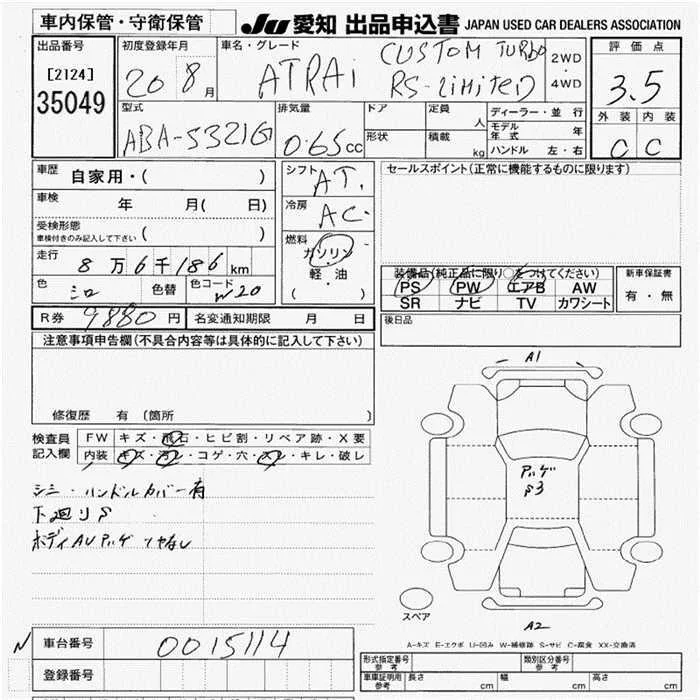 車内保管・守衛保管
JU 愛知 出品申込書 JAPAN USED CAR DEALERS ASSOCIATION
出品番号
[2124]
35049
初度登録年月
20 8 月
車名・グレード
ATRAi CUSTOM TURBO
RS-LiMiTED
2WD
・
4WD
評価点
3.5
外装 内装
C C
型式
ABA-S321G
排気量
0.65 cc
ドア
形状
定員
人
積載
kg
ディーラー・並行
モデル年式 年
ハンドル 左・右
車歴
自家用・( )
車検
年 月( 日)
受検形態
車検付きのみ記入して下さい ( )
走行
8万6千186 km
色
シロ
色替
色コード
W20
シフト
AT.
冷房
AC.
燃料
ガソリン
軽・油
( )
セールスポイント(正常に機能するものに限ります)
装備品(純正品に限り○をつけてください)
PS PW エアB AW
SR ナビ TV カワシート
新車保証書
有・無
R券 9880 円 名変通知期限 月 日
後日品
注意事項申告欄(不具合内容等は具体的に記入して下さい)
修復歴 有 (箇所 )
検査員
記入欄
FW キズ・飛石・ヒビ割・リペア跡・X要
内装 キズ・汚レ・コゲ・穴・スレ・キレ・破レ
シミ・ハンドルカバー有
下廻りS
ボディAU
A1
S3
A2
スペア
A-キズ E-エクボ U-凹み W-補修跡 S-サビ C-腐食 XX-交換済
N
車台番号
0015114
登録番号
形式指定番号
参考
類別区分番号
参考
車庫証明用
参考
長さ cm 幅 cm 高さ cm